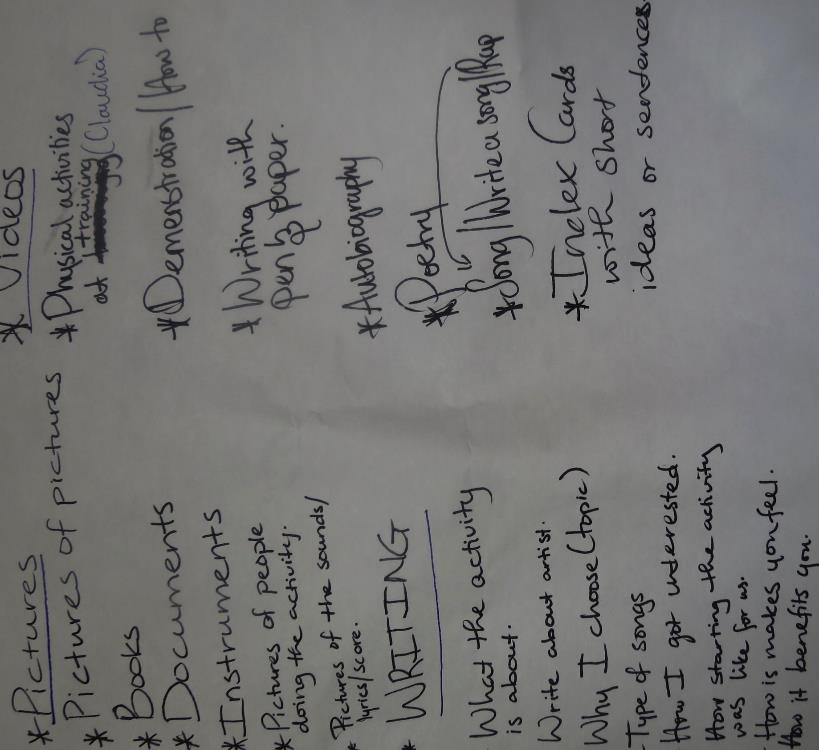 * Pictures
* Pictures of pictures
* Books
* Documents
* Instruments
* Pictures of people
doing the activity.
* Pictures of the sounds/
lyrics/score.
* WRITING
- What the activity
is about.
Write about artist.
Why I choose (topic)
- Type of songs
How I got interested.
How starting the activity
was like for us.
How is makes you feel.
How it benefits you.
* Videos
* Physical activities
at training (Claudia)
* Demonstration/How to
* Writing with
pen & paper.
* Autobiography
* Poetry
* Song/Write a song/Rap
* Index Cards
with short
ideas or sentences